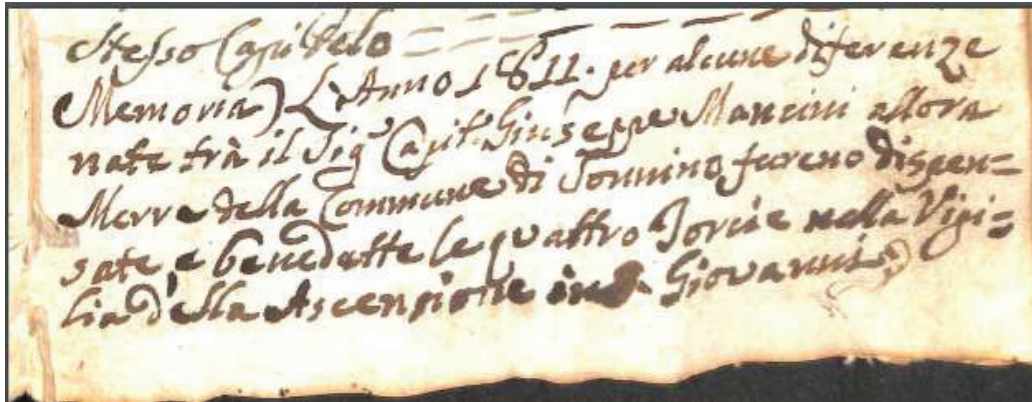 stesso Capitolo = = = = =
Memoria) L'Anno 1811. per alcune diferenze
nate trà il Sig.r Capit.o Giuseppe Mancini allora
Merre della Commune di Sonnino, fureno dispen=
sate, e benedette le quattro Torcie nella Vigi=
lia della Ascenzione in S. Giovanni